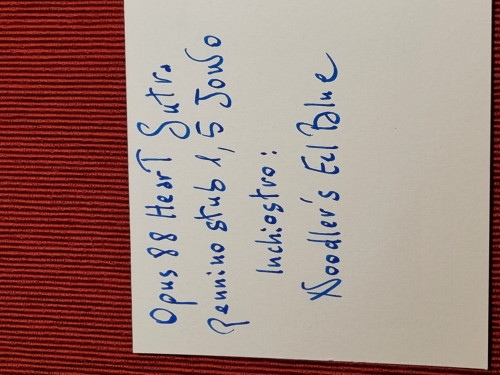 Opus 88 Heart Sutra
Pennino stub 1,5 Jowo
Inchiostro:
Noodler's Eel Blue